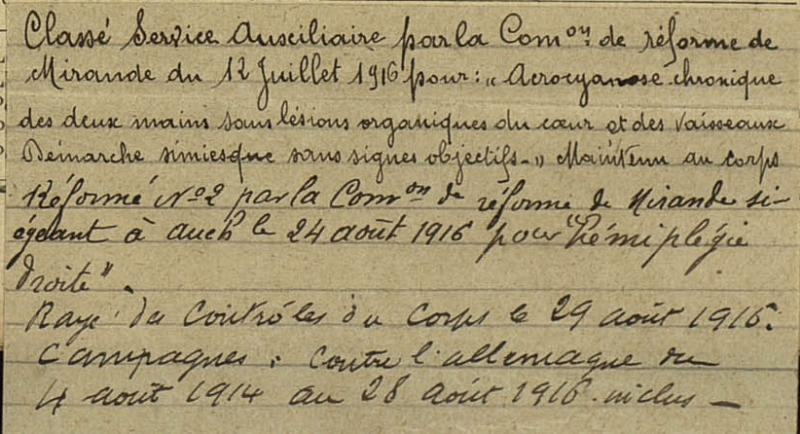 Classé Service Auxciliaire par la Com^on de réforme de
Mirande du 12 Juillet 1916 pour : „ Acrocyanose chronique
des deux mains sans lésions organiques du cœur et des vaisseaux
Démarche simiesque sans signes objectifs. „ Maintenu au corps
Réformé N° 2 par la Com^on de réforme de Mirande si-
égeant à auch le 24 août 1916 pour "hémiplégie
droite".
Rayé des Contrôles du Corps le 29 août 1916.
Campagnes : contre l'allemagne du
4 août 1914 au 28 août 1916 inclus —